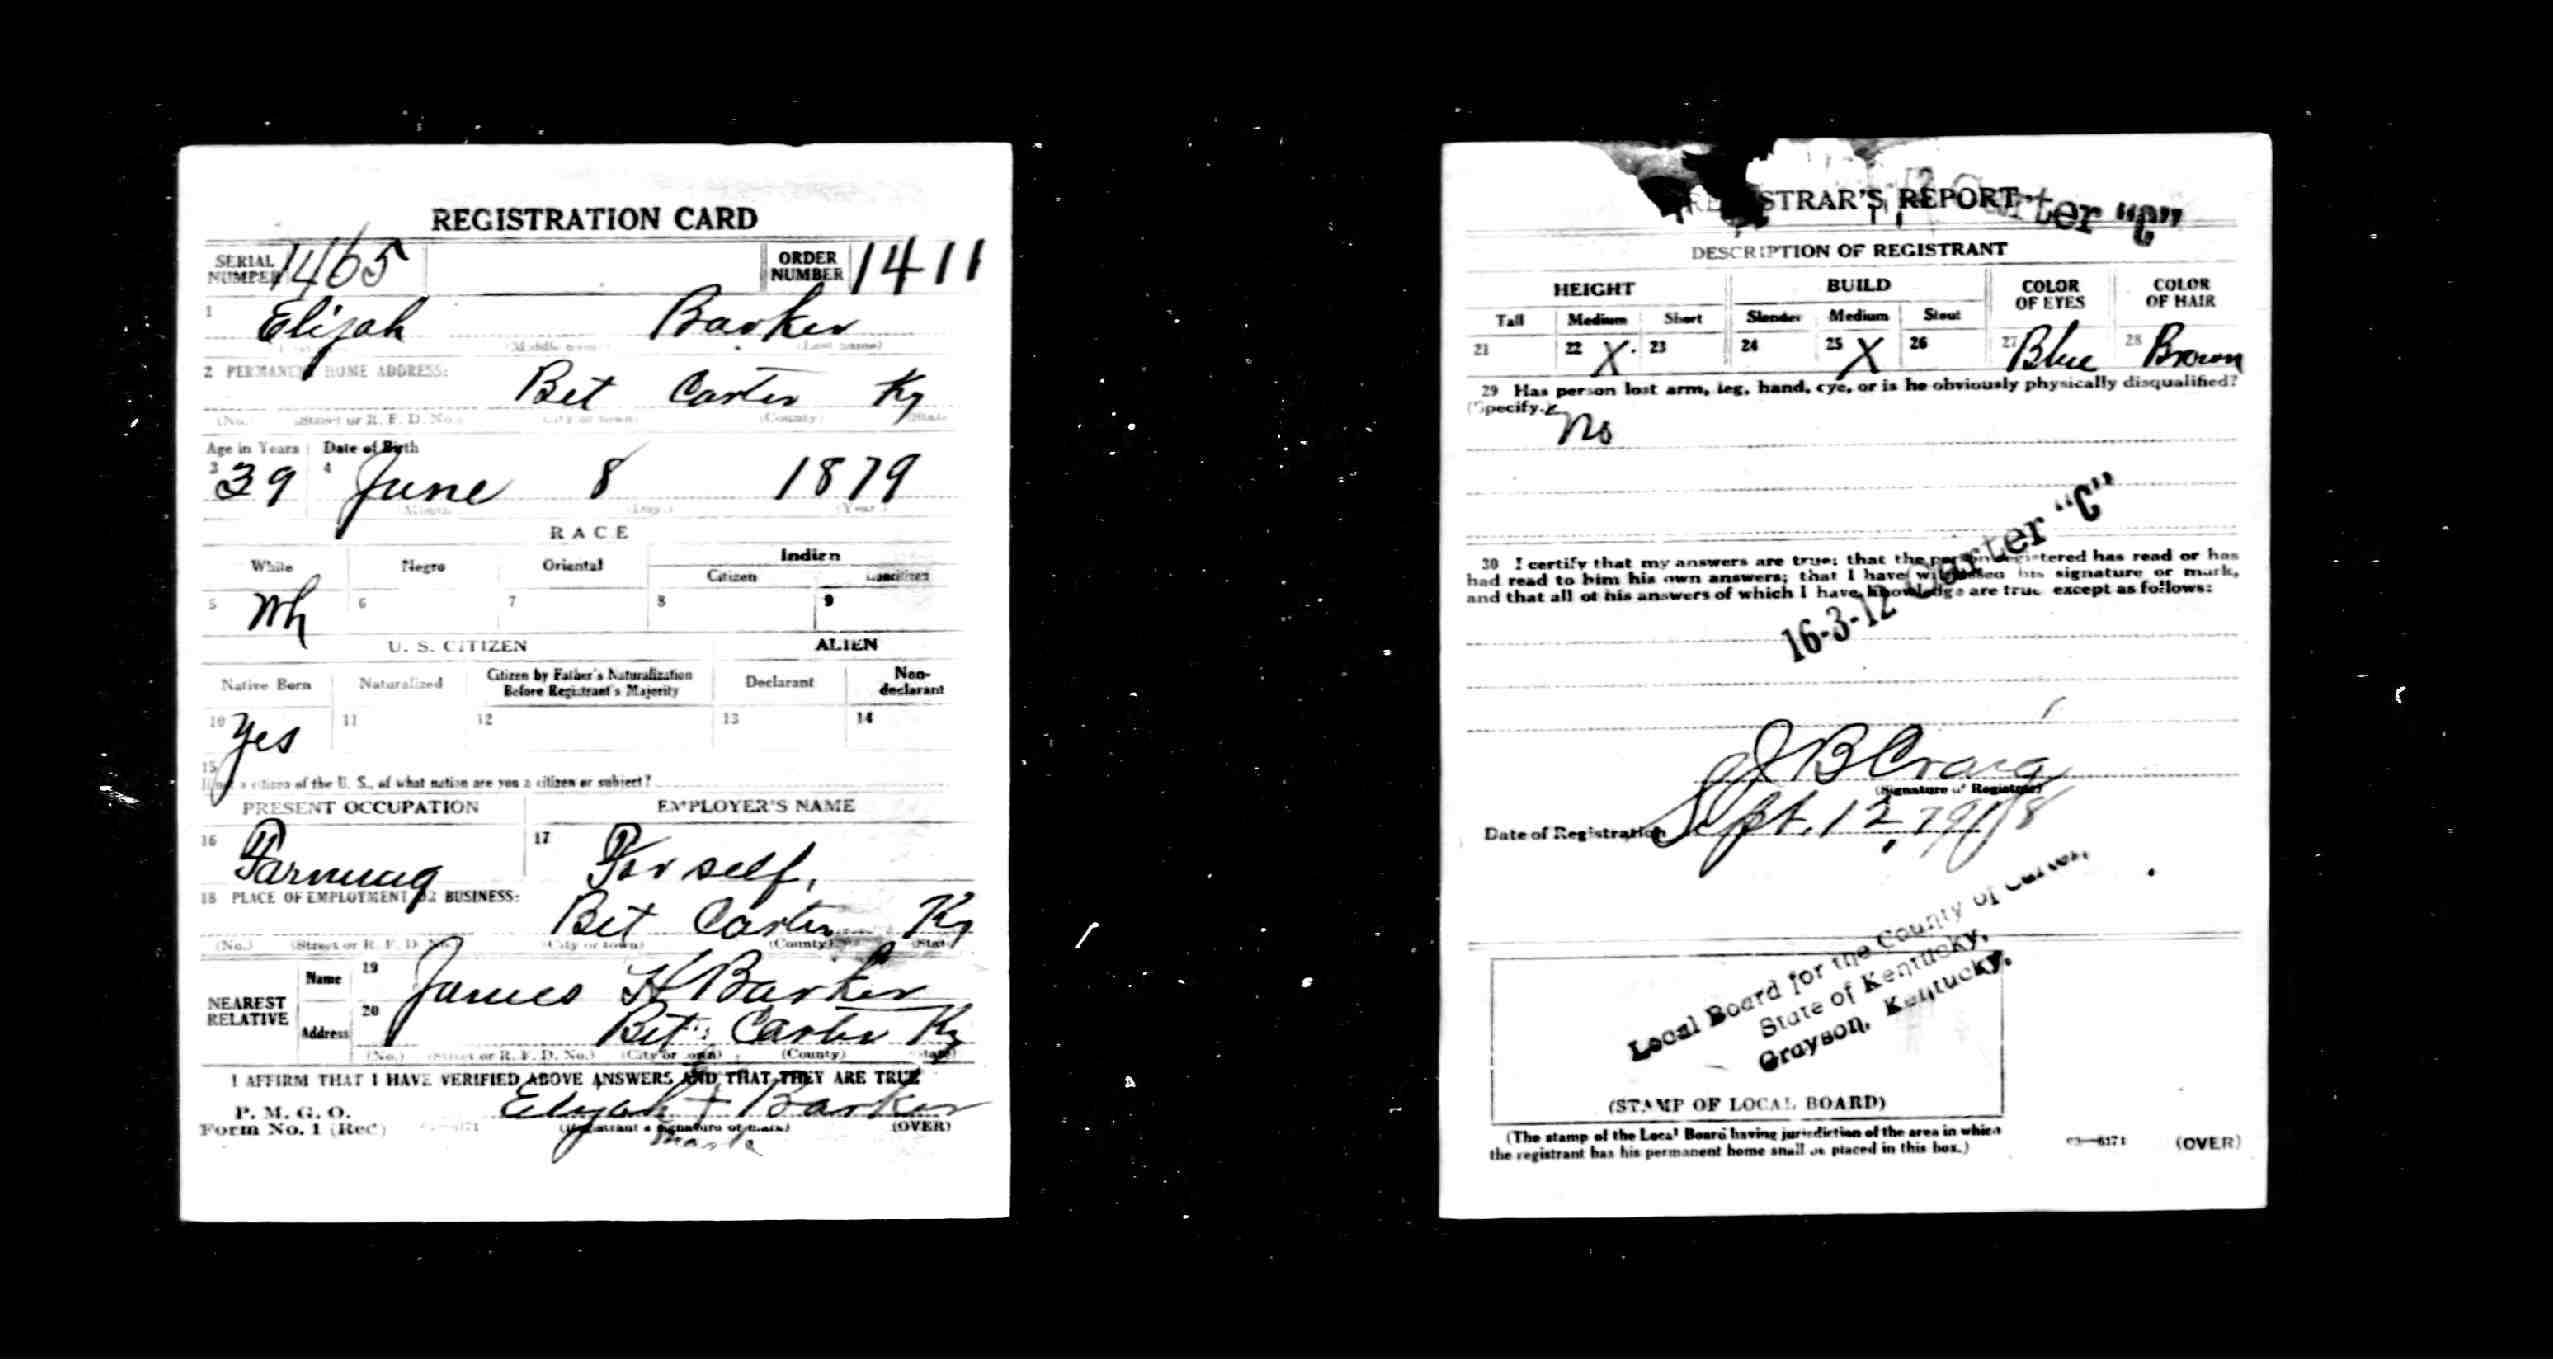 REGISTRATION CARD
SERIAL NUMBER 1465 ORDER NUMBER 1411
1 Elijah Barker
(Middle name) (Last name)
2 PERMANENT HOME ADDRESS:
Bet Carter Ky
(No.) (Street or R. F. D. No.) (City or town) (County) (State)
Age in Years Date of Birth
3 39 4 June 8 1879
(Month) (Day.) (Year.)
RACE
White Negro Oriental Indian
Citizen Noncitizen
5 Wh 6 7 8 9
U. S. CITIZEN ALIEN
Native Born Naturalized Citizen by Father's Naturalization Before Registrant's Majority Declarant Non-declarant
10 Yes 11 12 13 14
15
If not a citizen of the U. S., of what nation are you a citizen or subject?
PRESENT OCCUPATION EMPLOYER'S NAME
16 Farming 17 For self,
18 PLACE OF EMPLOYMENT OR BUSINESS:
Bet Carter Ky
(No.) (Street or R. F. D. No.) (City or town) (County) (State)
NEAREST RELATIVE
Name 19 James H Barker
Address 20 Bet Carter Ky
(No.) (Street or R. F. D. No.) (City or town) (County) (State)
I AFFIRM THAT I HAVE VERIFIED ABOVE ANSWERS AND THAT THEY ARE TRUE
P. M. G. O.
Form No. 1 (Red) Elijah + Barker
(Registrant's signature or mark) (OVER)
mark
REGISTRAR'S REPORT
Carter "C"
DESCRIPTION OF REGISTRANT
HEIGHT BUILD COLOR OF EYES COLOR OF HAIR
Tall Medium Short Slender Medium Stout
21 22 X 23 24 25 X 26 27 Blue 28 Brown
29 Has person lost arm, leg, hand, eye, or is he obviously physically disqualified?
(Specify.)
No
16-3-12 Carter "C"
30 I certify that my answers are true; that the person registered has read or has
had read to him his own answers; that I have witnessed his signature or mark,
and that all of his answers of which I have knowledge are true except as follows:
J B Craig
(Signature of Registrar)
Date of Registration Sept. 12, 1918
Local Board for the County of Carter,
State of Kentucky,
Grayson, Kentucky.
(STAMP OF LOCAL BOARD)
(The stamp of the Local Board having jurisdiction of the area in which
the registrant has his permanent home shall be placed in this box.)
03—6171 (OVER)